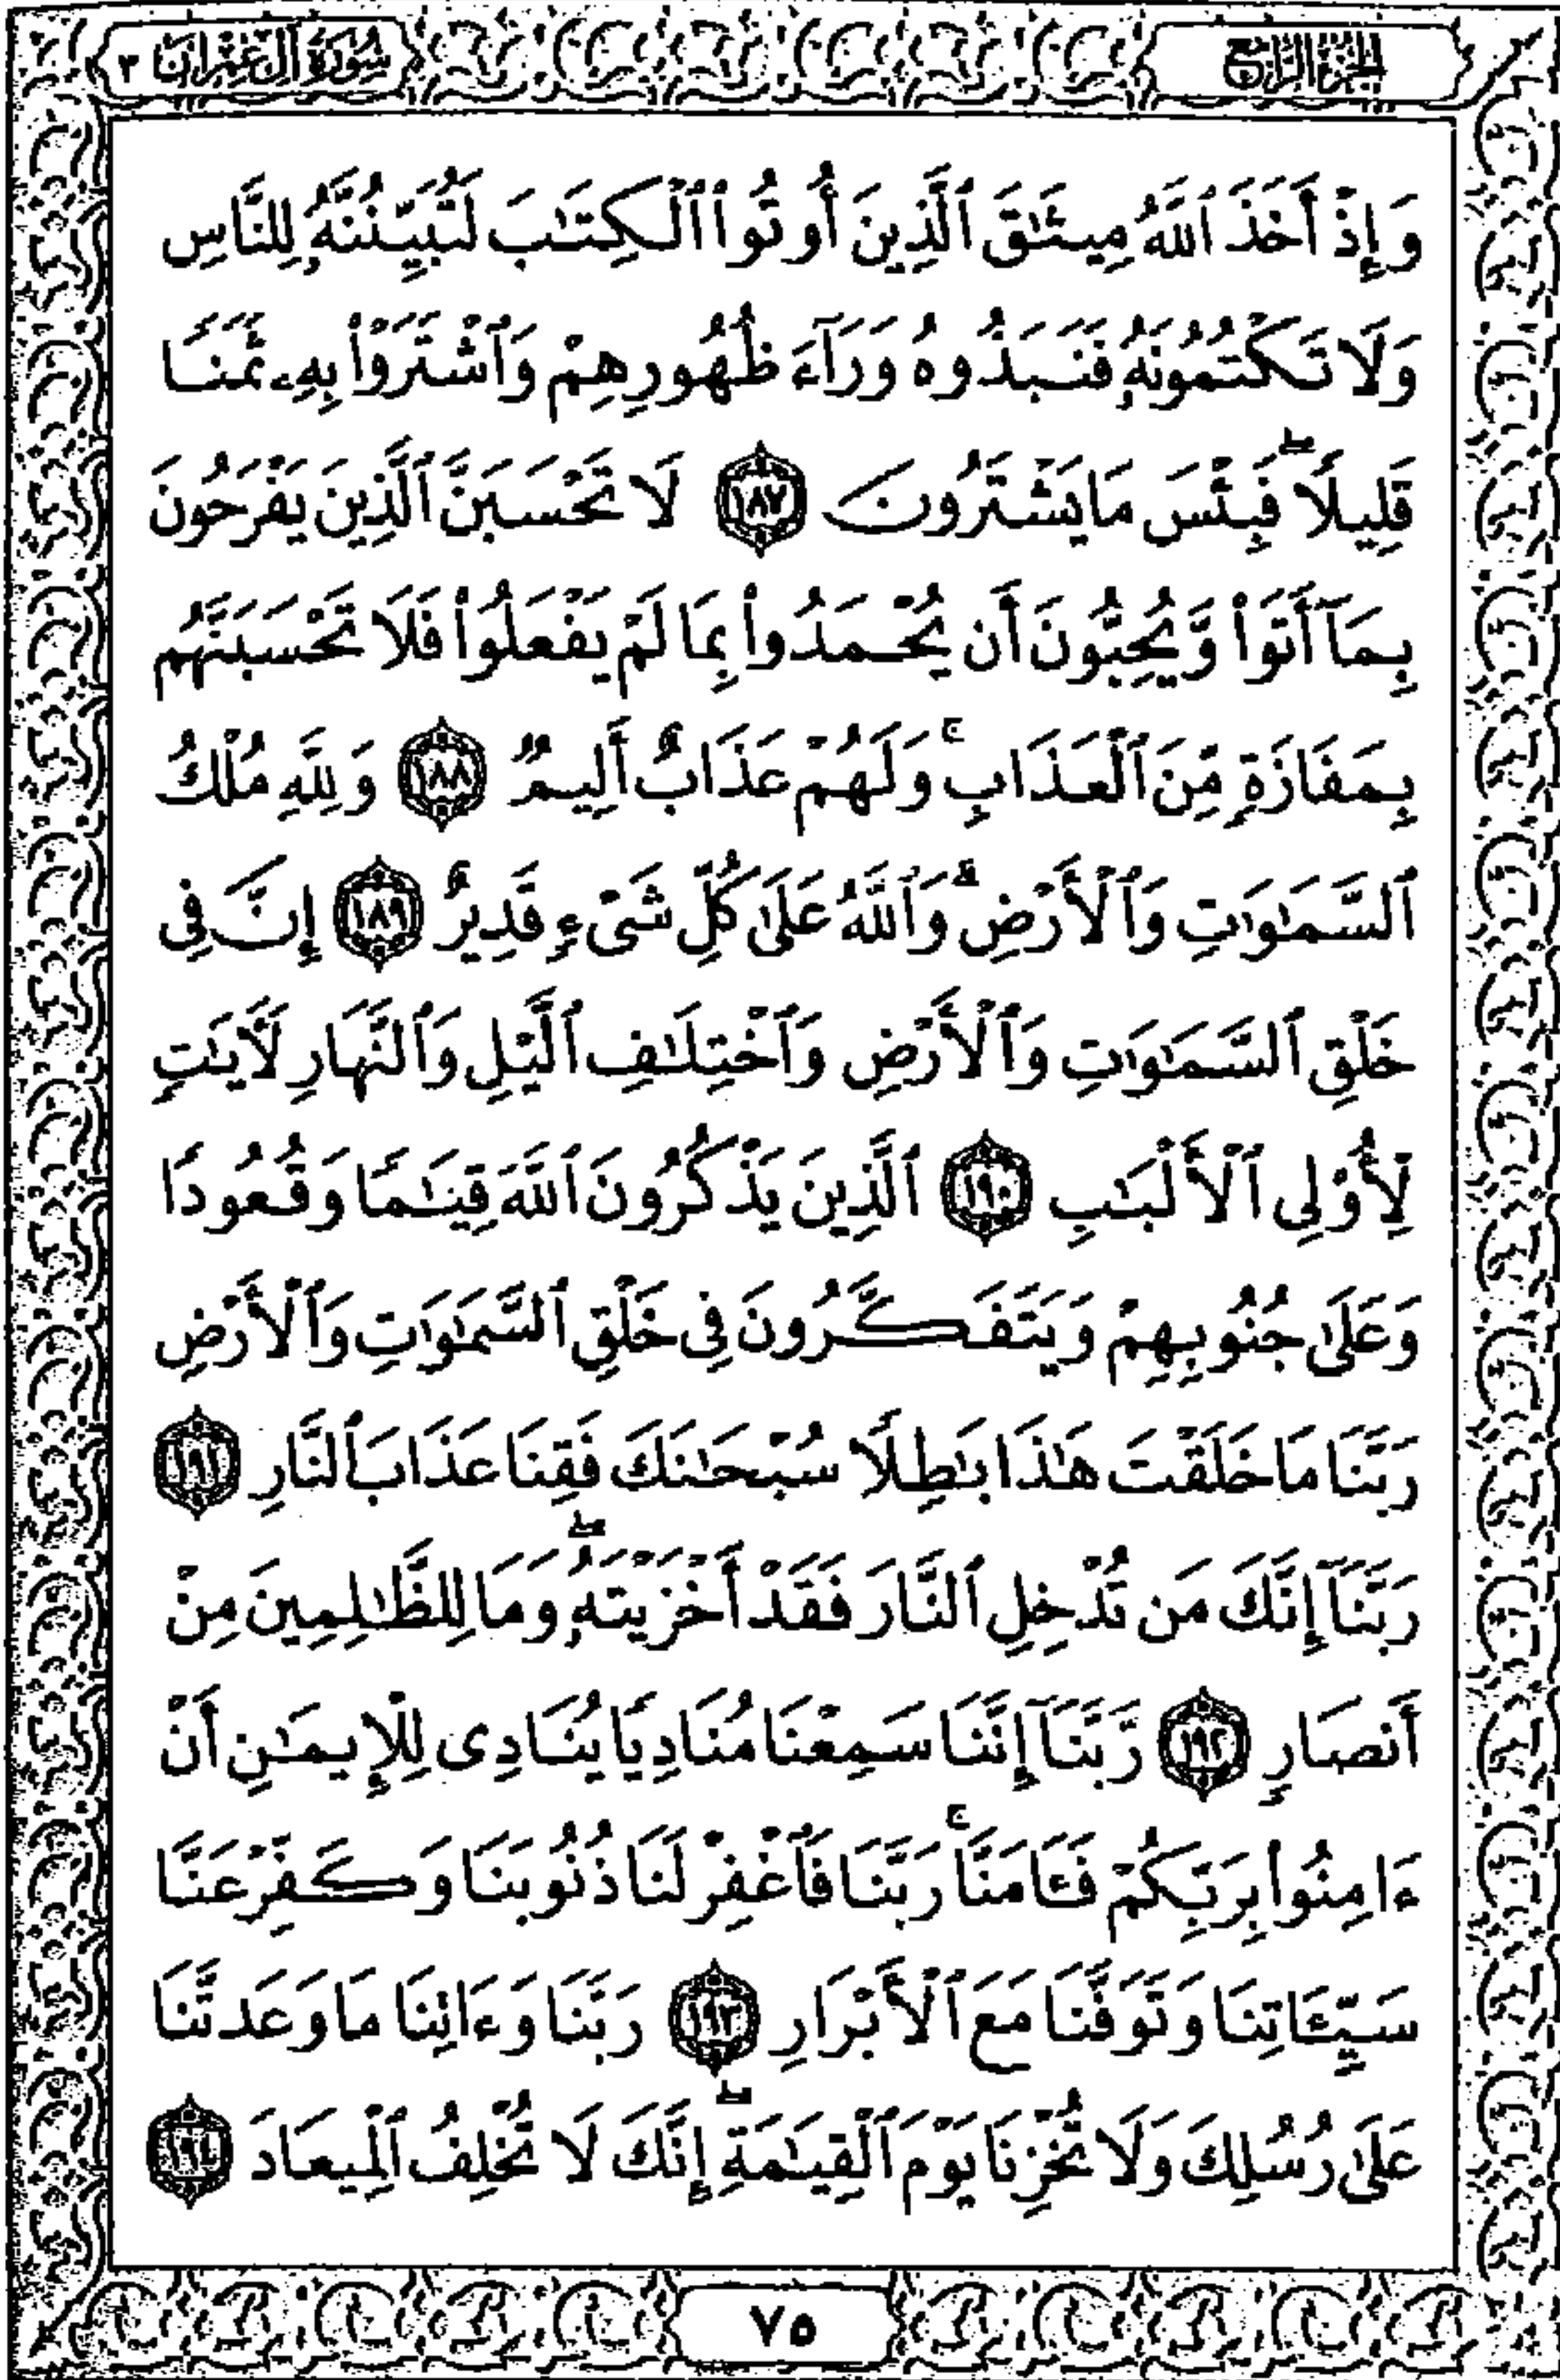 الجزء الرابع
سورة آل عمران ٣
وَإِذْ أَخَذَ ٱللَّهُ مِيثَٰقَ ٱلَّذِينَ أُوتُوا۟ ٱلْكِتَٰبَ لَتُبَيِّنُنَّهُۥ لِلنَّاسِ
وَلَا تَكْتُمُونَهُۥ فَنَبَذُوهُ وَرَآءَ ظُهُورِهِمْ وَٱشْتَرَوْا۟ بِهِۦ ثَمَنًا
قَلِيلًا ۖ فَبِئْسَ مَا يَشْتَرُونَ ١٨٧ لَا تَحْسَبَنَّ ٱلَّذِينَ يَفْرَحُونَ
بِمَآ أَتَوا۟ وَّيُحِبُّونَ أَن يُحْمَدُوا۟ بِمَا لَمْ يَفْعَلُوا۟ فَلَا تَحْسَبَنَّهُم
بِمَفَازَةٍ مِّنَ ٱلْعَذَابِ ۖ وَلَهُمْ عَذَابٌ أَلِيمٌ ١٨٨ وَلِلَّهِ مُلْكُ
ٱلسَّمَٰوَٰتِ وَٱلْأَرْضِ ۗ وَٱللَّهُ عَلَىٰ كُلِّ شَىْءٍ قَدِيرٌ ١٨٩ إِنَّ فِى
خَلْقِ ٱلسَّمَٰوَٰتِ وَٱلْأَرْضِ وَٱخْتِلَٰفِ ٱلَّيْلِ وَٱلنَّهَارِ لَءَايَٰتٍ
لِّأُو۟لِى ٱلْأَلْبَٰبِ ١٩٠ ٱلَّذِينَ يَذْكُرُونَ ٱللَّهَ قِيَٰمًا وَقُعُودًا
وَعَلَىٰ جُنُوبِهِمْ وَيَتَفَكَّرُونَ فِى خَلْقِ ٱلسَّمَٰوَٰتِ وَٱلْأَرْضِ
رَبَّنَا مَا خَلَقْتَ هَٰذَا بَٰطِلًا سُبْحَٰنَكَ فَقِنَا عَذَابَ ٱلنَّارِ ١٩١
رَبَّنَآ إِنَّكَ مَن تُدْخِلِ ٱلنَّارَ فَقَدْ أَخْزَيْتَهُۥ ۖ وَمَا لِلظَّٰلِمِينَ مِنْ
أَنصَارٍ ١٩٢ رَّبَّنَآ إِنَّنَا سَمِعْنَا مُنَادِيًا يُنَادِى لِلْإِيمَٰنِ أَنْ
ءَامِنُوا۟ بِرَبِّكُمْ فَـَٔامَنَّا ۚ رَبَّنَا فَٱغْفِرْ لَنَا ذُنُوبَنَا وَكَفِّرْ عَنَّا
سَيِّـَٔاتِنَا وَتَوَفَّنَا مَعَ ٱلْأَبْرَارِ ١٩٣ رَبَّنَا وَءَاتِنَا مَا وَعَدتَّنَا
عَلَىٰ رُسُلِكَ وَلَا تُخْزِنَا يَوْمَ ٱلْقِيَٰمَةِ ۖ إِنَّكَ لَا تُخْلِفُ ٱلْمِيعَادَ ١٩٤
٧٥